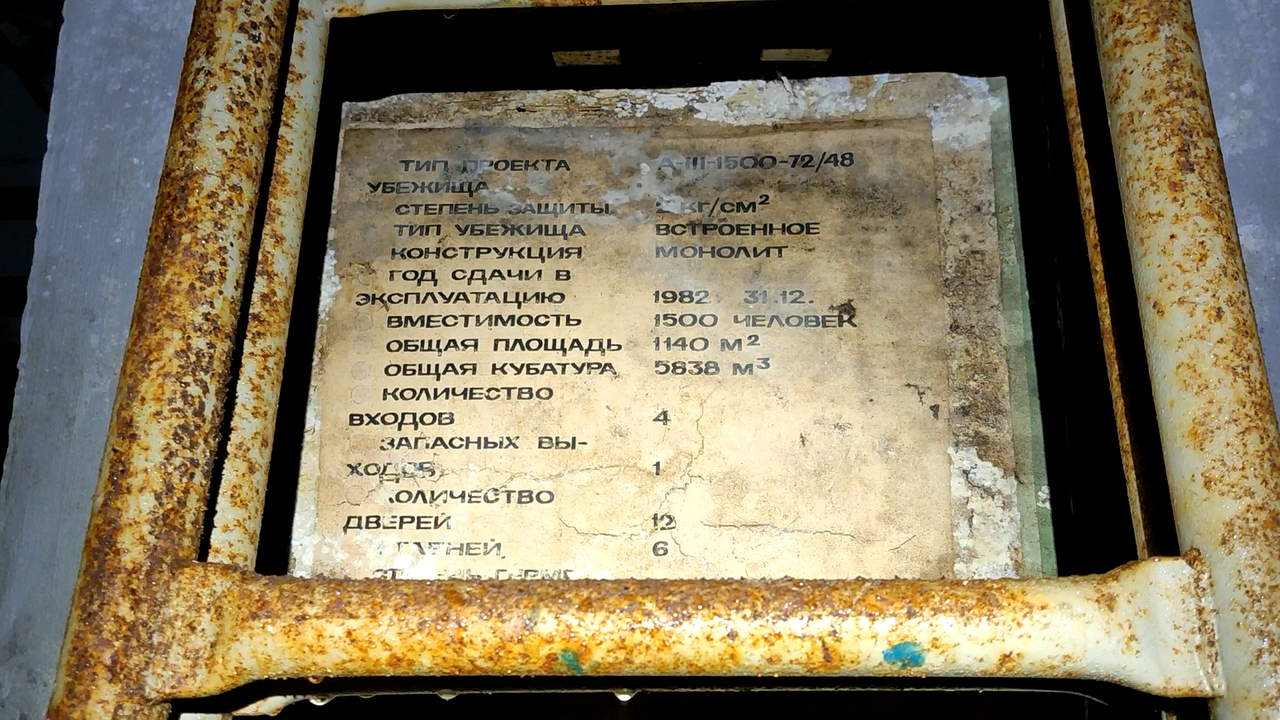 ТИП ПРОЕКТА А-III-1500-72/48
УБЕЖИЩА
СТЕПЕНЬ ЗАЩИТЫ КГ/СМ²
ТИП УБЕЖИЩА ВСТРОЕННОЕ
КОНСТРУКЦИЯ МОНОЛИТ
ГОД СДАЧИ В
ЭКСПЛУАТАЦИЮ 1982 31.12.
ВМЕСТИМОСТЬ 1500 ЧЕЛОВЕК
ОБЩАЯ ПЛОЩАДЬ 1140 М²
ОБЩАЯ КУБАТУРА 5838 М³
КОЛИЧЕСТВО
ВХОДОВ 4
ЗАПАСНЫХ ВЫ-
ХОДОВ 1
КОЛИЧЕСТВО
ДВЕРЕЙ 12
СТАВНЕЙ 6